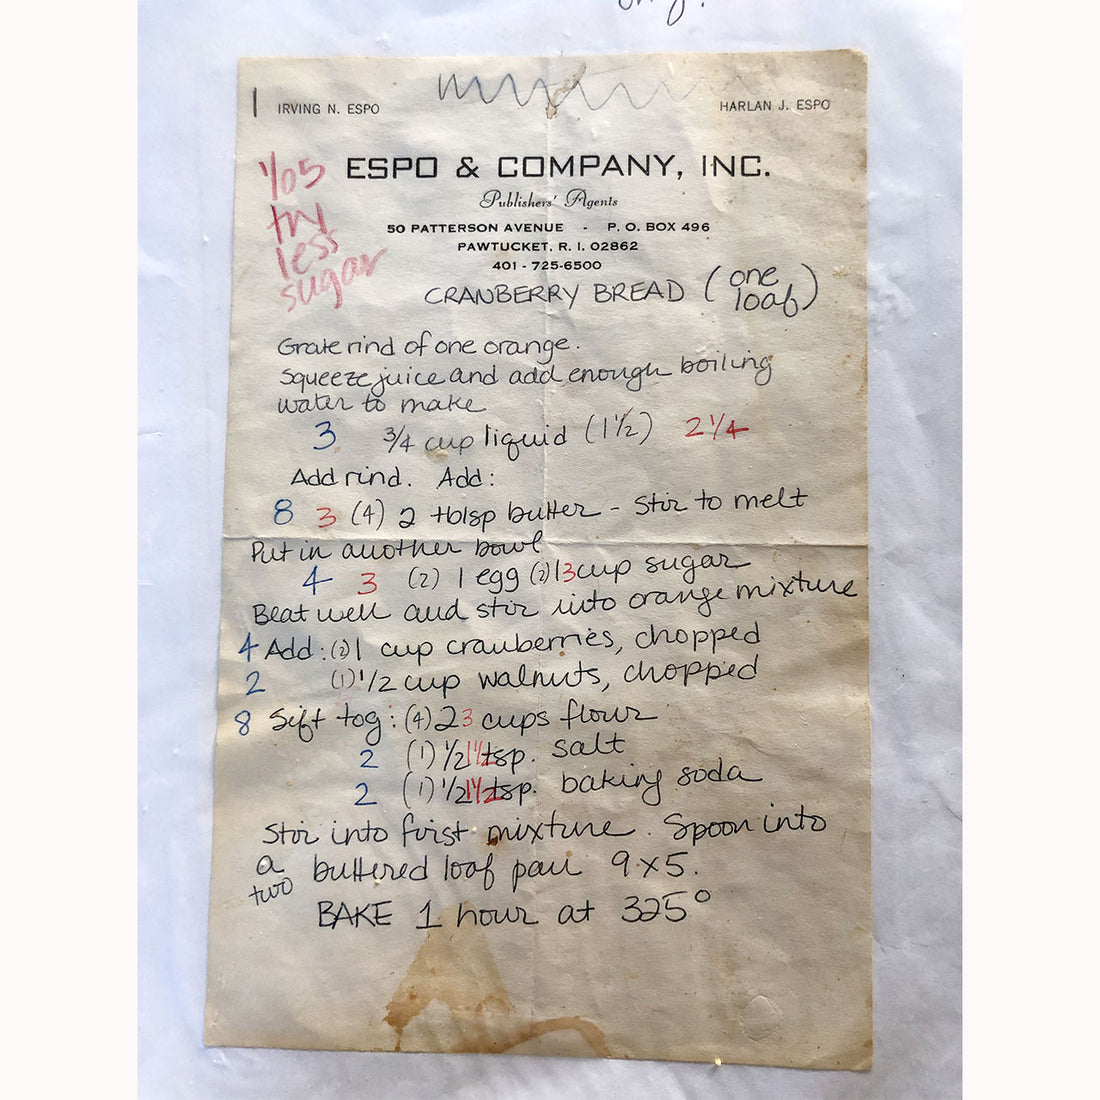 only!
IRVING N. ESPO
HARLAN J. ESPO
ESPO & COMPANY, INC.
Publishers' Agents
50 PATTERSON AVENUE - P. O. BOX 496
PAWTUCKET, R. I. 02862
401 - 725-6500
1/05
try
less
sugar
CRANBERRY BREAD (one loaf)
Grate rind of one orange.
Squeeze juice and add enough boiling
water to make
3 3/4 cup liquid (1 1/2) 2 1/4
Add rind. Add:
8 3 (4) 2 tblsp butter - stir to melt
Put in another bowl
4 3 (2) 1 egg (2) 1 3 cup sugar
Beat well and stir into orange mixture
4 Add: (2) 1 cup cranberries, chopped
2 (1) 1/2 cup walnuts, chopped
8 Sift tog: (4) 2 3 cups flour
2 (1) 1/2 1 1/2 tsp. salt
2 (1) 1/2 1 1/2 tsp. baking soda
Stir into first mixture. Spoon into
a buttered loaf pan 9x5.
two
BAKE 1 hour at 325°